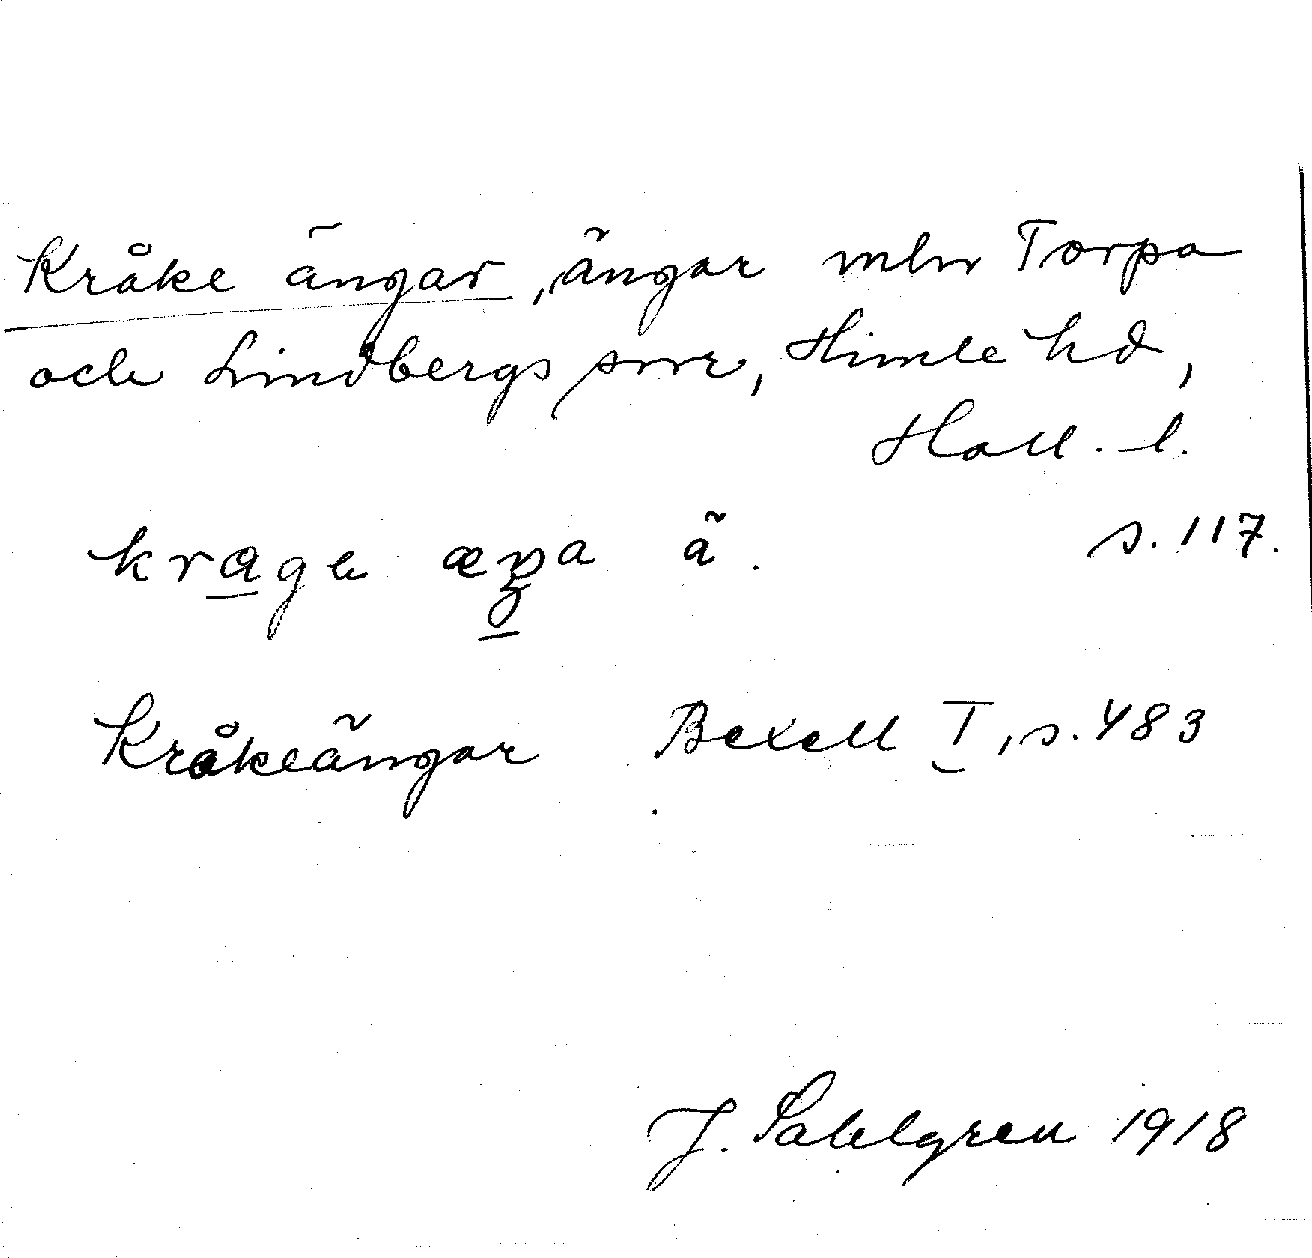 Kråke ängar, ängar mln Torpa
och Lindbergs snr, Himle hd,
Hall. l.
krage æŋa ä. s. 117.
Kråkeängar Bexell I, s. 483
J. Sahlgren 1918